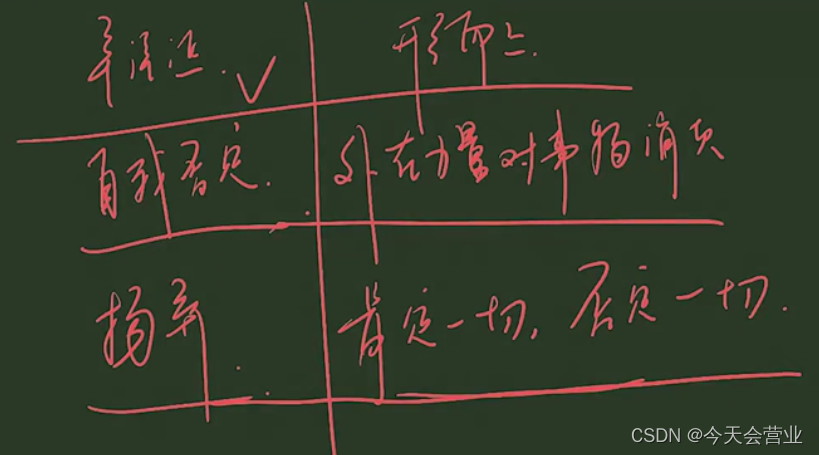 辩证法. ✓ 形而上.
自我否定. 外在力量对事物消灭
扬弃. 肯定一切, 否定一切.
CSDN @今天会营业